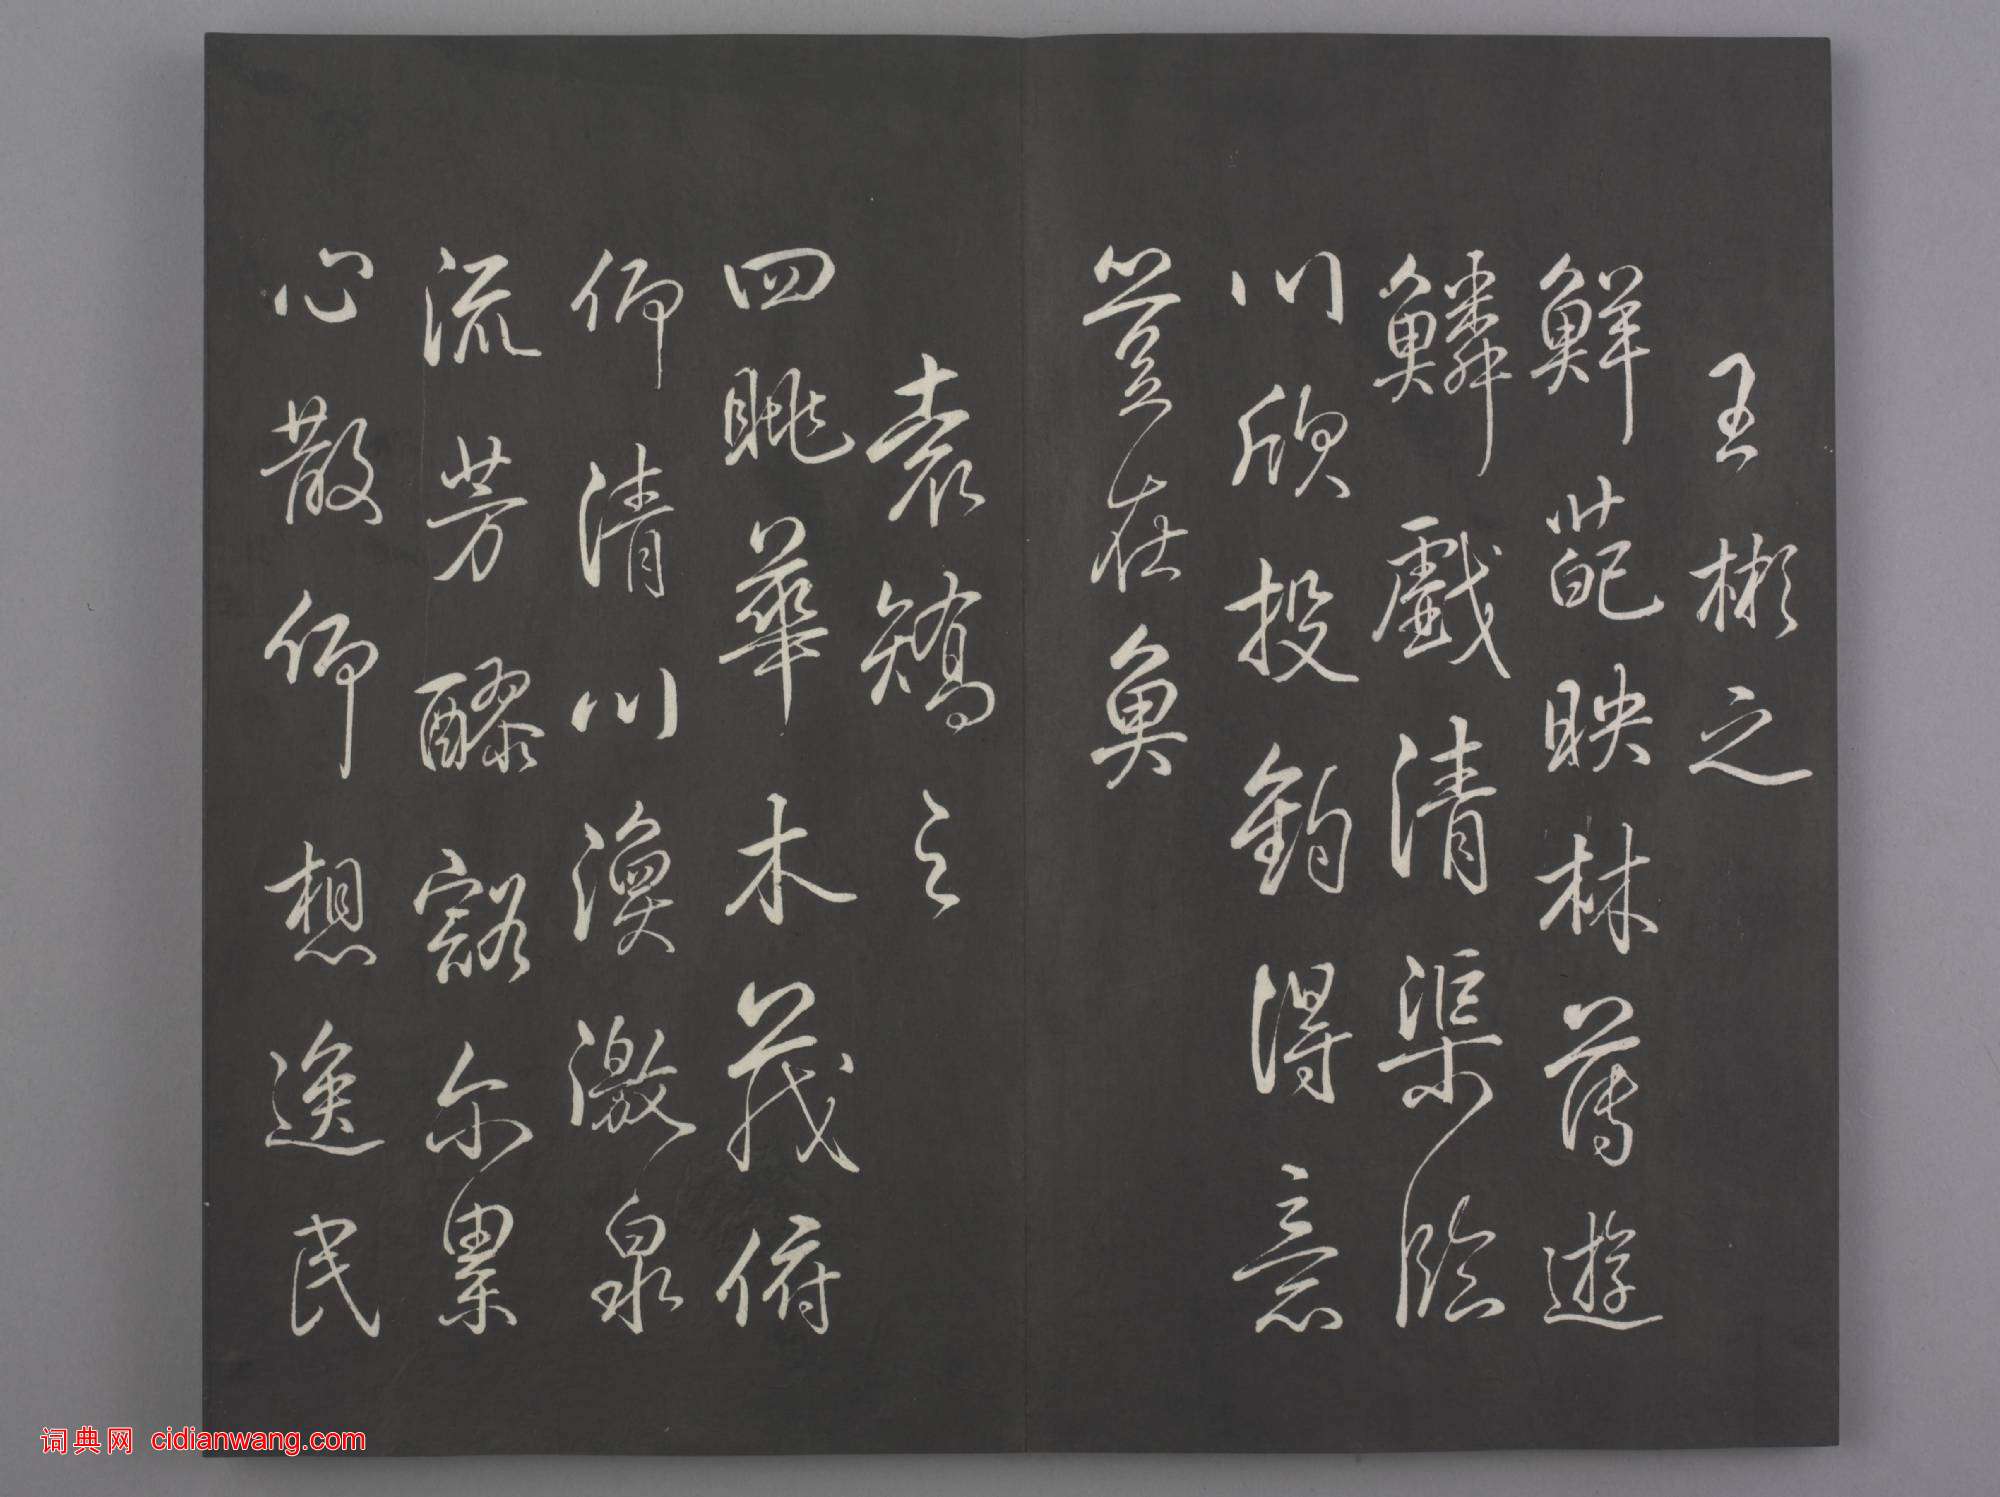 王彬之
鮮葩映林薄遊
鱗戲清渠臨
川欣投釣得意
豈在魚
袁矯之
四眺華木茂俯
仰清川渙激泉
流芳醪豁尔累
心散仰想逸民
词典网 cidianwang.com